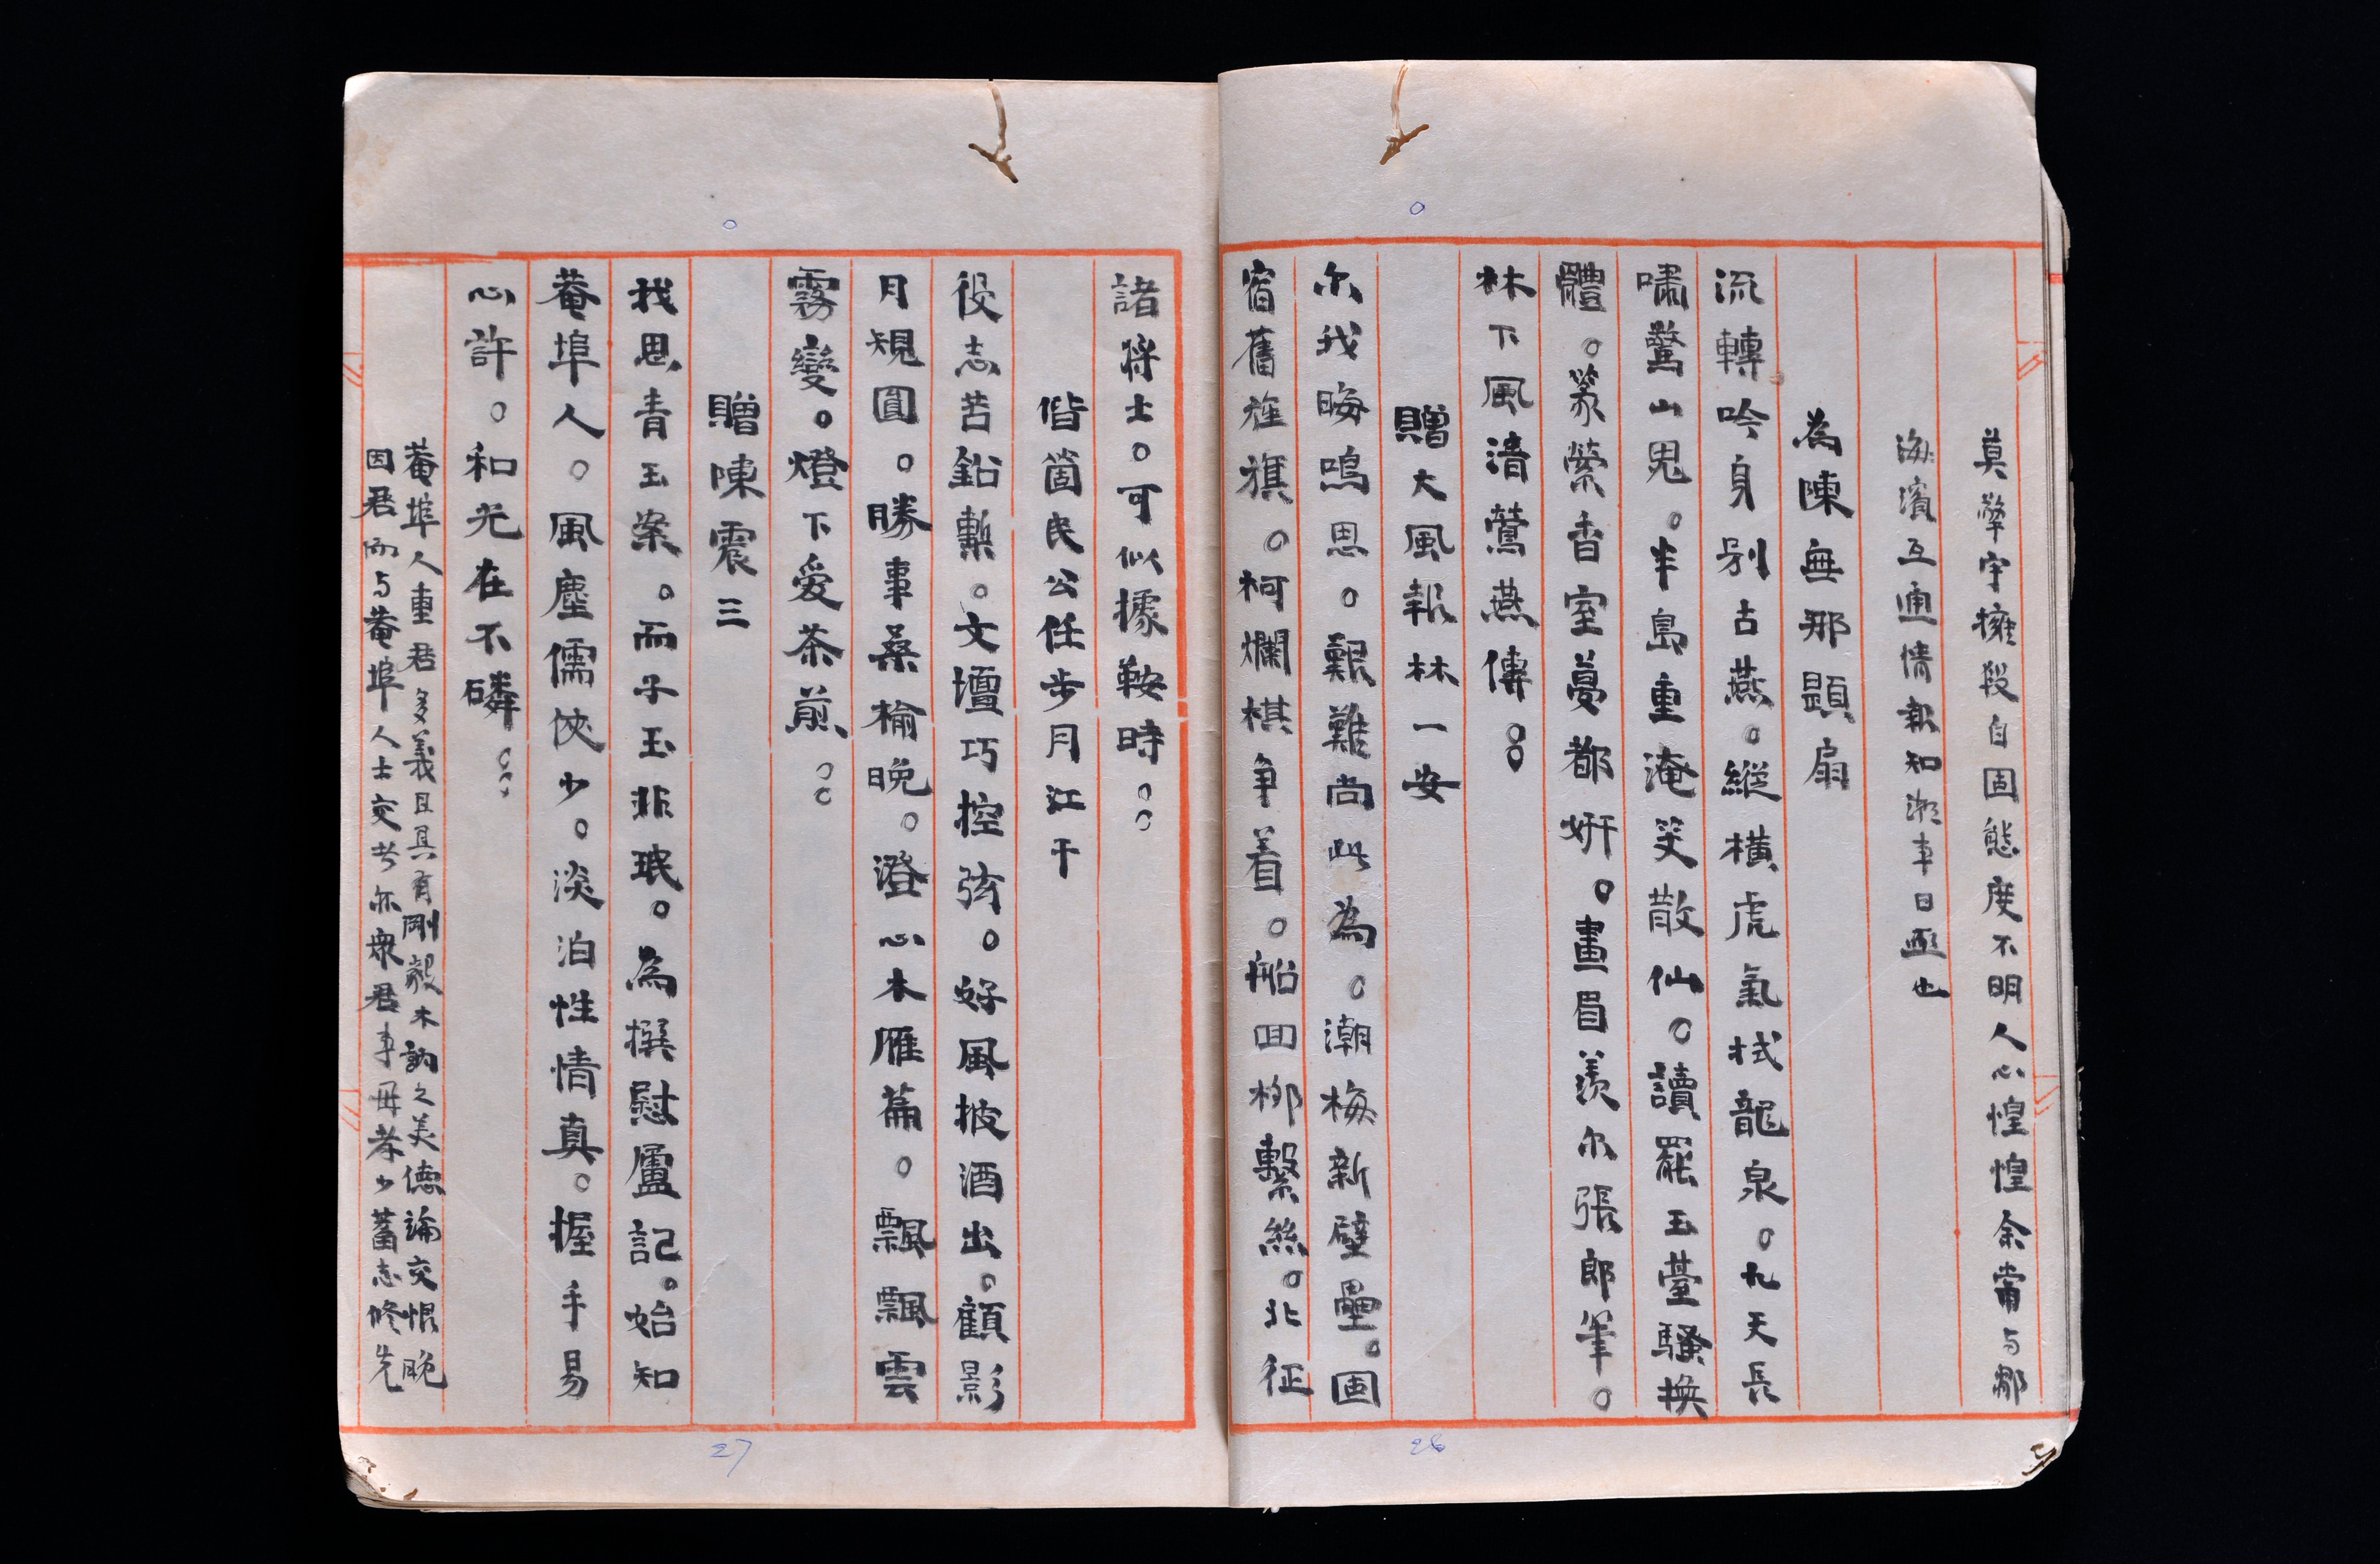 莫擎宇擁段自固態度不明人心惶惶余常与鄰
海濱互通情報知潮事日亟也
為陳無那題扇
流轉吟身別古燕。縱橫虎氣拭龍泉。九天長
嘯驚山鬼。半島重淹笑散仙。讀罷玉臺騷換
體。篆縈香室夢都妍。畫眉羨尔張郎筆。
林下風清鶯燕傳。。
贈大風報林一安
尔我晦鳴思。艱難尚此為。潮梅新壁壘。固
宿舊旌旗。柯爛棋争着。船回柳繫絲。北征
諸將士。可似據鞍時。。
偕箇民公任步月江干
役志苦鉛槧。文壇巧控弦。好風披酒出。顧影
月規圓。勝事桑榆晚。澄心木雁篇。飄飄雲
霧變。燈下爱茶煎。。
贈陳震三
找思青玉案。而子玉非珉。為撰慰廬記。始知
菴埠人。風塵儒俠少。淡泊性情真。握手易
心許。和光在不磷。。
菴埠人重君多義且具有剛毅木訥之美德論交恨晚
因君而与菴埠人士交者亦衆君事母孝少蓄志修先
27
26